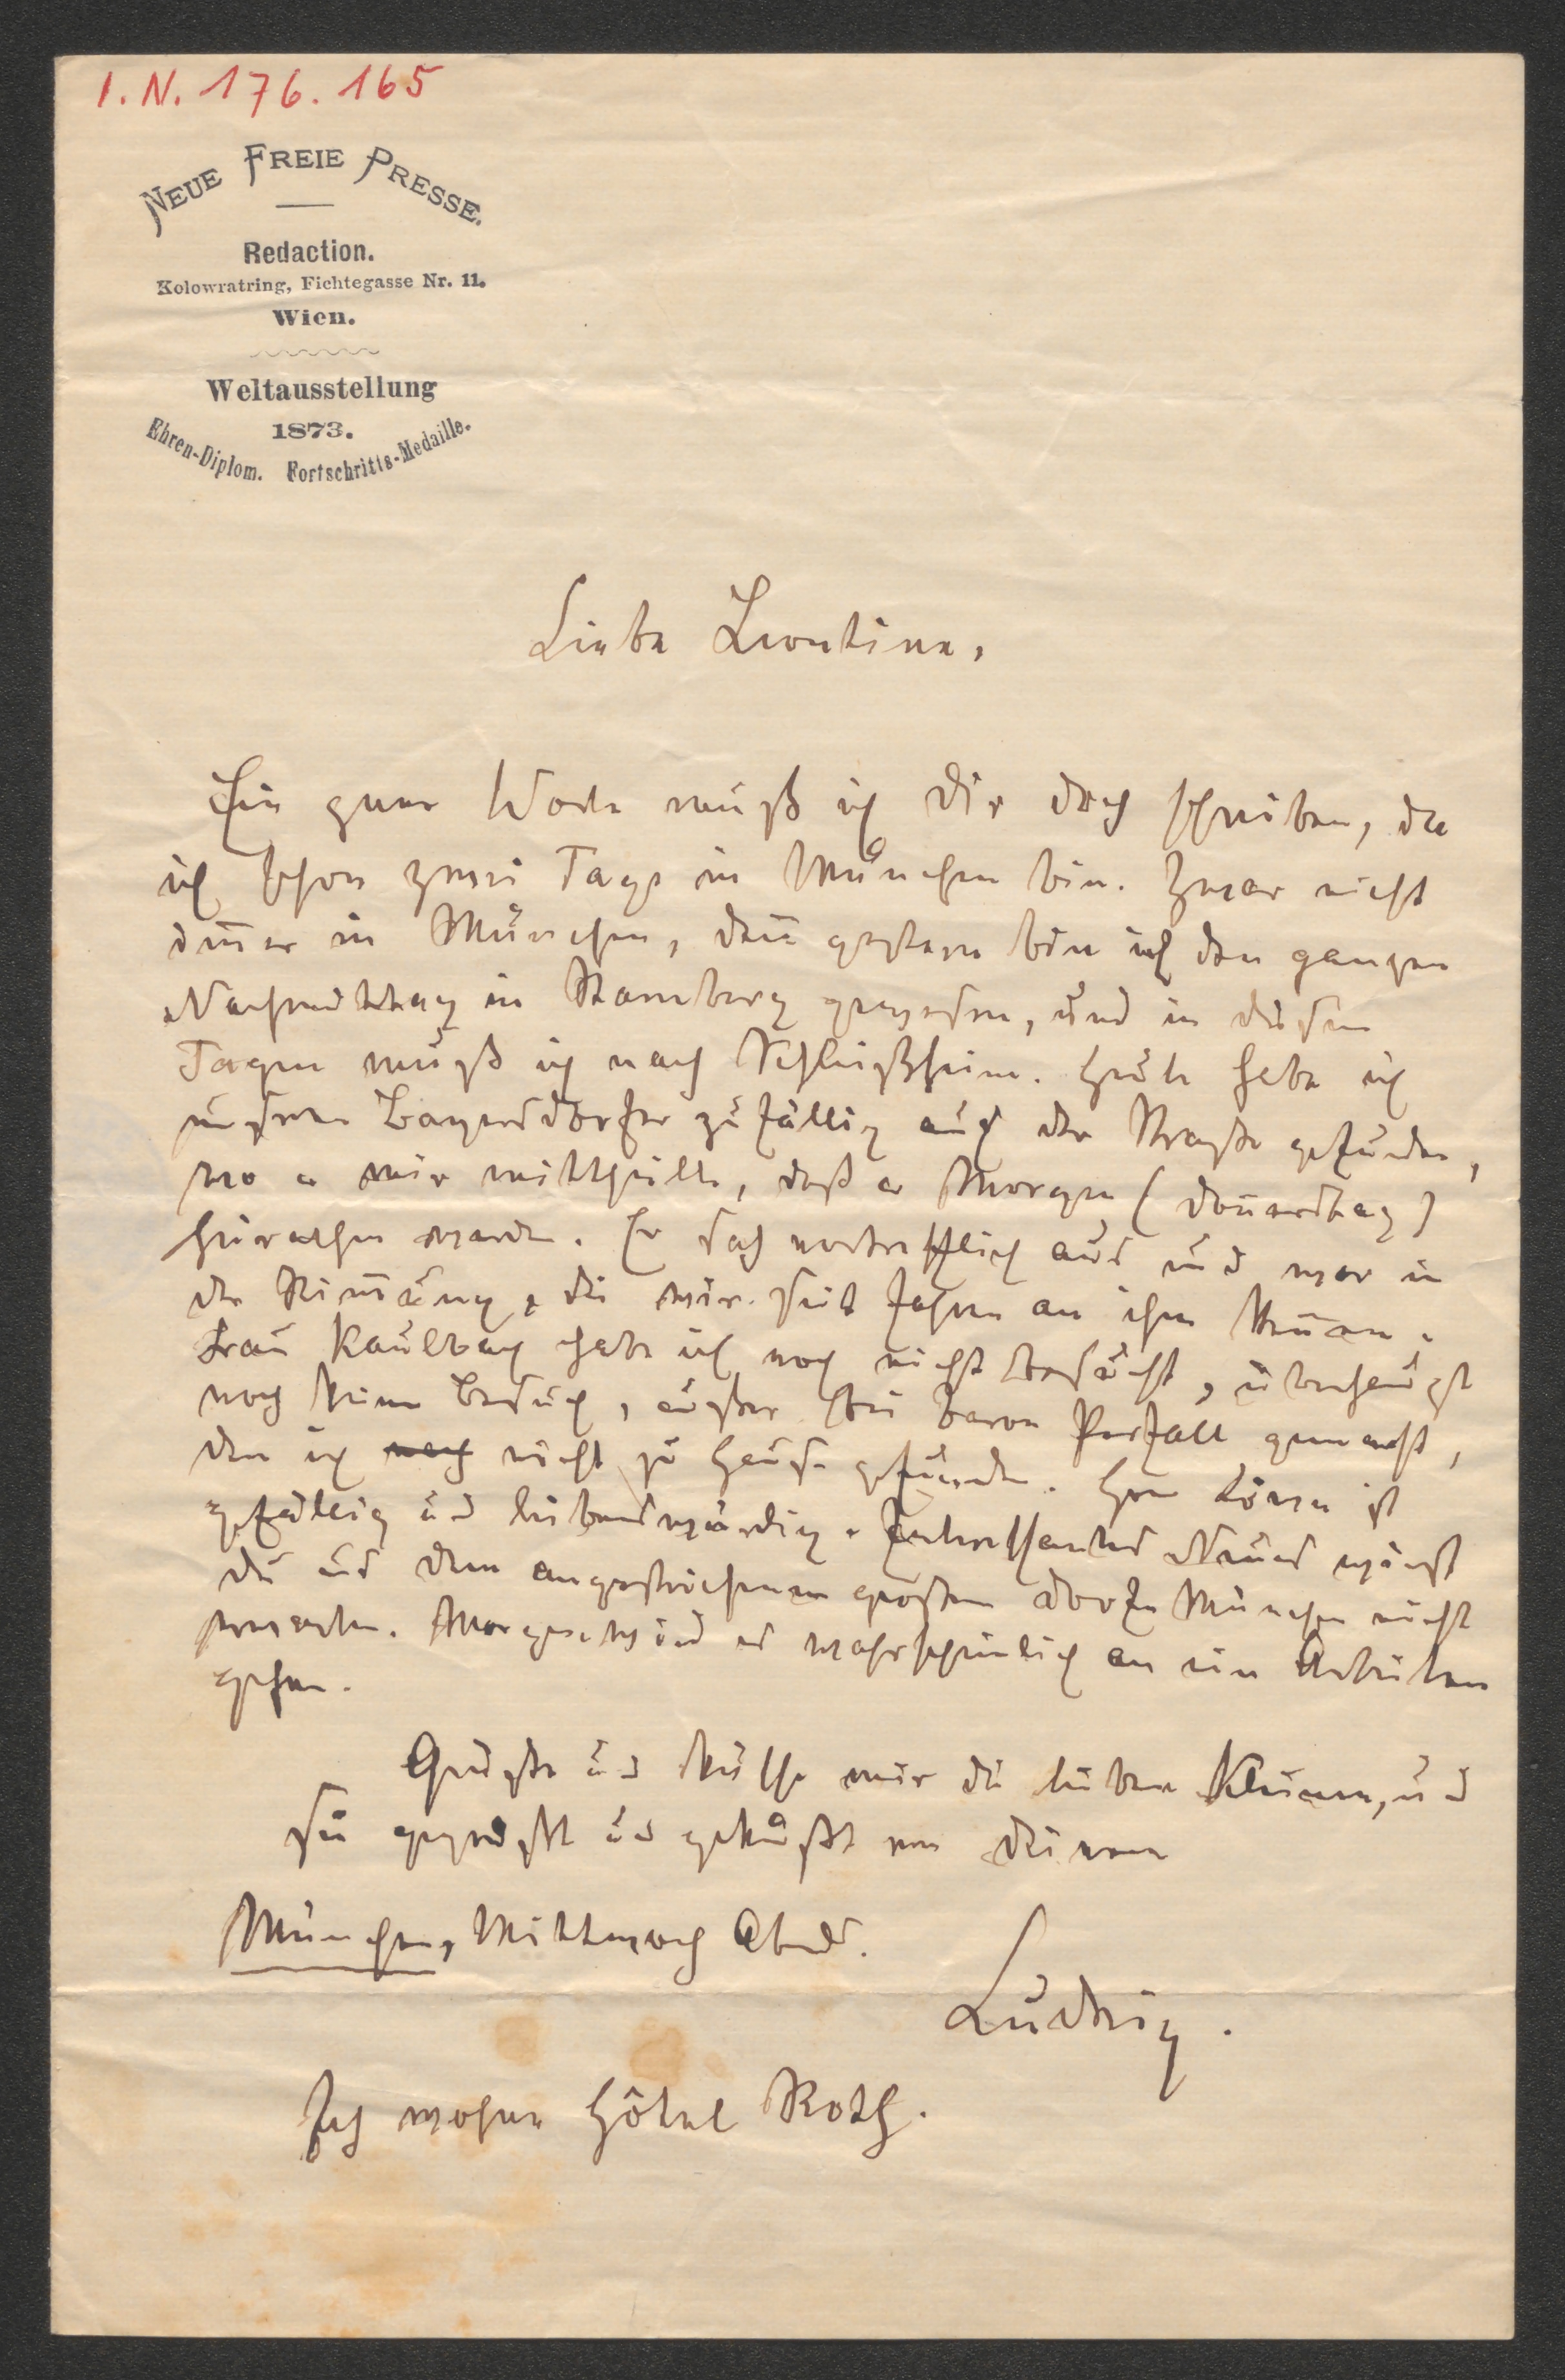 I. N. 176.165
NEUE FREIE PRESSE.
Redaction.
Kolowratring, Fichtegasse Nr. 11.
Wien.
Weltausstellung
1873.
Ehren-Diplom. Fortschritts-Medaille.
Liebe Leontine,
Ein paar Worte muß ich Dir doch schreiben, da
ich schon zwei Tage in München bin. Zwar nicht
immer in München, denn gestern bin ich den ganzen
Nachmittag in Starnberg gewesen, und in diesen
Tagen muß ich nach Schleißheim. Heute habe ich
unseren Bayersdorfer zufällig auf der Straße gefunden,
wo er mir mittheilte, daß er Morgen (Donnerstag)
heirathen werde. Er sah vortrefflich aus und war in
der Stimmung, die wir seit Jahren an ihm kennen.
Frau Kaulbach habe ich noch nicht besucht, überhaupt
noch keinen Besuch, außer bei Baron Perfall gemacht,
den ich noch nicht zu Hause gefunden. Herr Löwe ist
gefällig und liebenswürdig. Interessantes Neues wirst
Du aus dem angestrichenen großen Dorfe München nicht
erwarten. Morgen wird es wahrscheinlich an ein Arbeiten
gehen.
Grüße und küsse mir die lieben Kleinen, und
sei gegrüßt und geküßt von Deinem
München, Mittwoch Abends.
Ludwig.
Ich wohne Hôtel Roth.